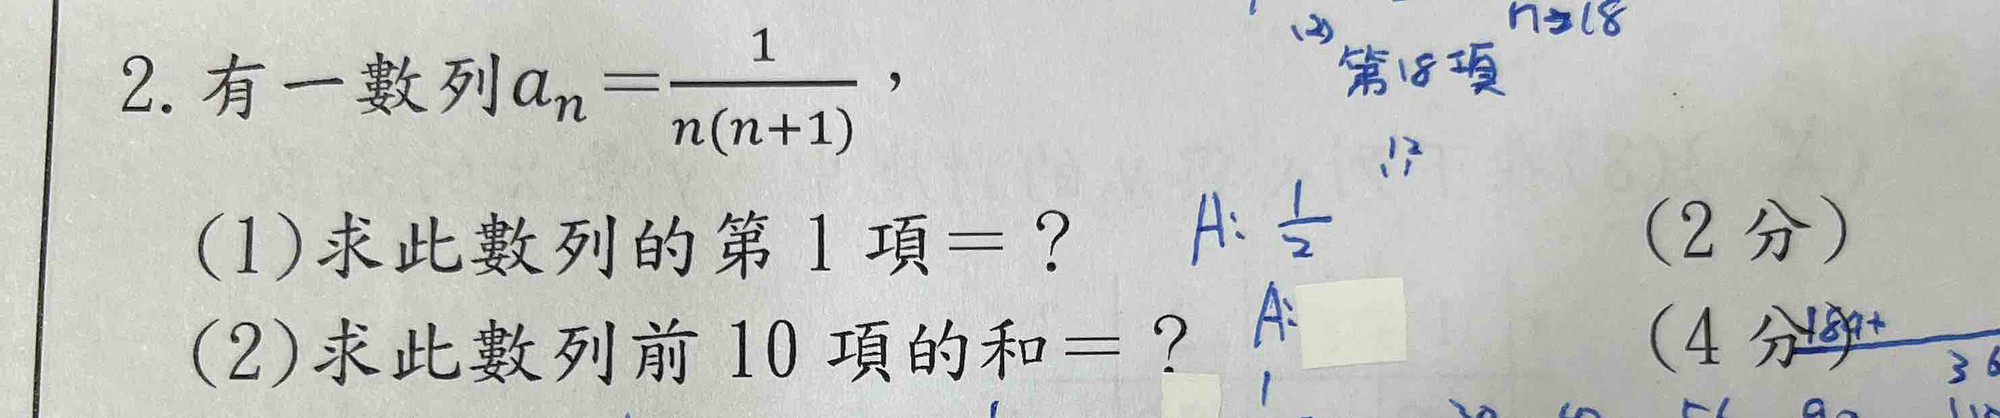 n=18
(2)
第18項
2. 有一數列 aₙ = 1/n(n+1)，
(1)求此數列的第 1 項＝？ A: 1/2 (2 分)
(2)求此數列前 10 項的和＝？ A: (4 分)
36